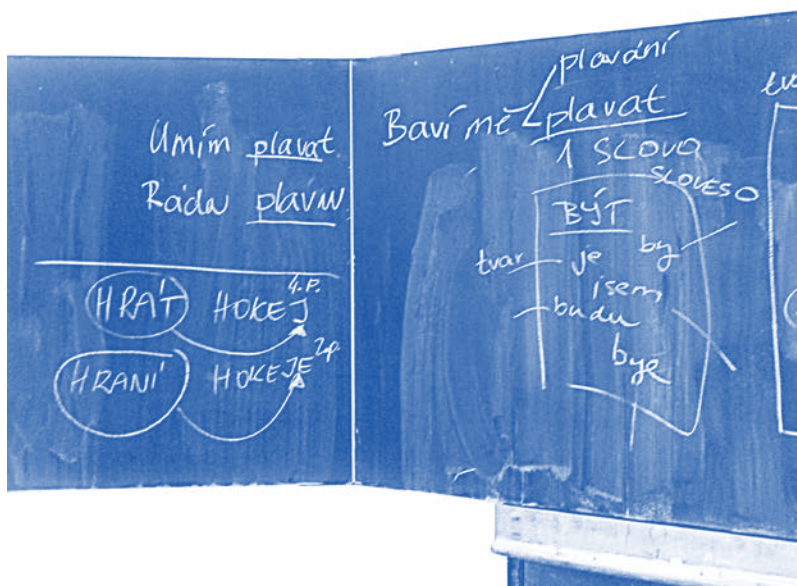 Umím plavat
Ráda plavu
HRÁT HOKEJ 4.p.
HRANÍ HOKEJE 2.p.
plavání
Baví mě plavat
1 SLOVO
SLOVESO
BÝT
tvar je by
jsem
budu